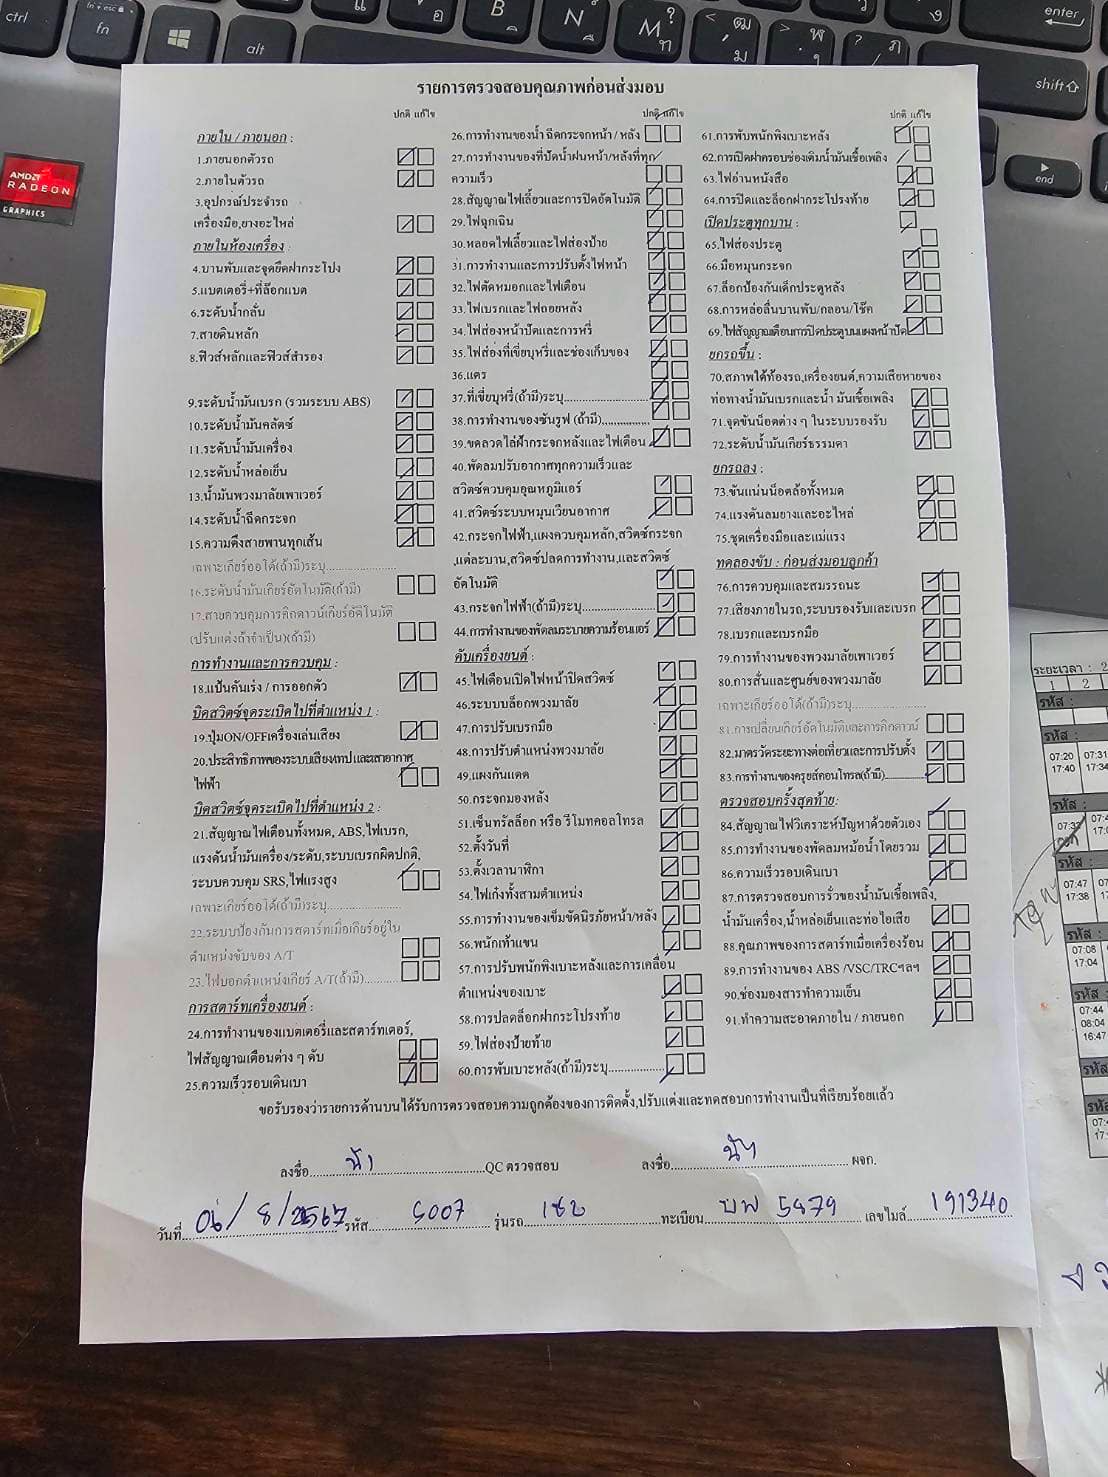 รายการตรวจสอบคุณภาพก่อนส่งมอบ
ปกติ แก้ไข
ภายใน / ภายนอก :
1.ภายนอกตัวรถ
2.ภายในตัวรถ
3.อุปกรณ์ประจำรถ
เครื่องมือ,ยางอะไหล่
ภายในห้องเครื่อง :
4.บานพับและจุดยึดฝากระโปง
5.แบตเตอรี่+ที่ล๊อกแบต
6.ระดับน้ำกลั่น
7.สายดินหลัก
8.ฟิวส์หลักและฟิวส์สำรอง
9.ระดับน้ำมันเบรก (รวมระบบ ABS)
10.ระดับน้ำมันคลัตซ์
11.ระดับน้ำมันเครื่อง
12.ระดับน้ำหล่อเย็น
13.น้ำมันพวงมาลัยเพาเวอร์
14.ระดับน้ำฉีดกระจก
15.ความตึงสายพานทุกเส้น
เฉพาะเกียร์ออโต้(ถ้ามี)ระบุ
16.ระดับน้ำมันเกียร์อัตโนมัติ(ถ้ามี)
17.สายควบคุมการคิกดาวน์เกียร์อัติโนมัติ
(ปรับแต่งถ้าจำเป็น)(ถ้ามี)
การทำงานและการควบคุม :
18.แป้นคันเร่ง / การออกตัว
บิดสวิตซ์จุดระเบิดไปที่ตำแหน่ง 1 :
19.ปุ่มON/OFFเครื่องเล่นเสียง
20.ประสิทธิภาพของระบบเสียงเทปและเสาอากาศ
ไฟฟ้า
บิดสวิตซ์จุดระเบิดไปที่ตำแหน่ง 2 :
21.สัญญาณไฟเตือนทั้งหมด, ABS,ไฟเบรก,
แรงดันน้ำมันเครื่อง/ระดับ,ระบบเบรกผิดปกติ,
ระบบควบคุม SRS,ไฟแรงสูง
เฉพาะเกียร์ออโต้(ถ้ามี)ระบุ
22.ระบบป้องกันการสตาร์ทเมื่อเกียร์อยู่ใน
ตำแหน่งขับของ A/T
23.ไฟบอกตำแหน่งเกียร์ A/T(ถ้ามี)..........
การสตาร์ทเครื่องยนต์ :
24.การทำงานของแบตเตอรี่และสตาร์ทเตอร์,
ไฟสัญญาณเตือนต่าง ๆ ดับ
25.ความเร็วรอบเดินเบา
ปกติ แก้ไข
26.การทำงานของน้ำ ฉีดกระจกหน้า / หลัง
27.การทำงานของที่ปัดน้ำฝนหน้า/หลังที่ทุก
ความเร็ว
28.สัญญาณไฟเลี้ยวและการปิดอัตโนมัติ
29.ไฟฉุกเฉิน
30.หลอดไฟเลี้ยวและไฟส่องป้าย
31.การทำงานและการปรับตั้งไฟหน้า
32.ไฟตัดหมอกและไฟเตือน
33.ไฟเบรกและไฟถอยหลัง
34.ไฟส่องหน้าปัดและการหรี่
35.ไฟส่องที่เขี่ยบุหรี่และช่องเก็บของ
36.แตร
37.ที่เขี่ยบุหรี่(ถ้ามี)ระบุ
38.การทำงานของซันรูฟ (ถ้ามี)
39.ขดลวดไล่ฝ้ากระจกหลังและไฟเตือน
40.พัดลมปรับอากาศทุกความเร็วและ
สวิตซ์ควบคุมอุณหภูมิแอร์
41.สวิตซ์ระบบหมุนเวียนอากาศ
42.กระจกไฟฟ้า,แผงควบคุมหลัก,สวิตซ์กระจก
,แต่ละบาน,สวิตซ์ปลดการทำงาน,และสวิตซ์
อัตโนมัติ
43.กระจกไฟฟ้า(ถ้ามี)ระบุ
44.การทำงานของพัดลมระบายความร้อนแอร์
ดับเครื่องยนต์ :
45.ไฟเตือนเปิดไฟหน้าปิดสวิตซ์
46.ระบบบล็อกพวงมาลัย
47.การปรับเบรกมือ
48.การปรับตำแหน่งพวงมาลัย
49.แผงกันแดด
50.กระจกมองหลัง
51.เซ็นทรัลล็อก หรือ รีโมทคอลโทรล
52.ตั้งวันที่
53.ตั้งเวลานาฬิกา
54.ไฟเก๋งทั้งสามตำแหน่ง
55.การทำงานของเข็มขัดนิรภัยหน้า/หลัง
56.พนักเท้าแขน
57.การปรับพนักพิงเบาะหลังและการเคลื่อน
ตำแหน่งของเบาะ
58.การปลดล็อกฝากระโปรงท้าย
59.ไฟส่องป้ายท้าย
60.การพับเบาะหลัง(ถ้ามี)ระบุ
ปกติ แก้ไข
61.การพับพนักพิงเบาะหลัง
62.การเปิดฝาครอบช่องเติมน้ำมันเชื้อเพลิง
63.ไฟอ่านหนังสือ
64.การปิดและล็อกฝากระโปรงท้าย
เปิดประตูทุกบาน :
65.ไฟส่องประตู
66.มือหมุนกระจก
67.ล็อกป้องกันเด็กประตูหลัง
68.การหล่อลื่นบานพับ/กลอน/โช๊ค
69.ไฟสัญญาณเตือนการปิดประตูบนแผงหน้าปัด
ยกรถขึ้น :
70.สภาพใต้ท้องรถ,เครื่องยนต์,ความเสียหายของ
ท่อทางน้ำมันเบรกและน้ำ มันเชื้อเพลิง
71.จุดขันน็อตต่าง ๆ ในระบบรองรับ
72.ระดับน้ำมันเกียร์ธรรมดา
ยกรถลง :
73.ขันแน่นน็อตล้อทั้งหมด
74.แรงดันลมยางและอะไหล่
75.ชุดเครื่องมือและแม่แรง
ทดลองขับ : ก่อนส่งมอบลูกค้า
76.การควบคุมและสมรรถนะ
77.เสียงภายในรถ,ระบบรองรับและเบรก
78.เบรกและเบรกมือ
79.การทำงานของพวงมาลัยเพาเวอร์
80.การสั่นและศูนย์ของพวงมาลัย
เฉพาะเกียร์ออโต้(ถ้ามี)ระบุ
81.การเปลี่ยนเกียร์อัตโนมัติและการคิกดาวน์
82.มาตรวัดระยะทางต่อเที่ยวและการปรับตั้ง
83.การทำงานของครุยส์คอนโทรล(ถ้ามี)
ตรวจสอบครั้งสุดท้าย:
84.สัญญาณไฟวิเคราะห์ปัญหาด้วยตัวเอง
85.การทำงานของพัดลมหม้อน้ำ โดยรวม
86.ความเร็วรอบเดินเบา
87.การตรวจสอบการรั่วของน้ำมันเชื้อเพลิง,
น้ำมันเครื่อง,น้ำหล่อเย็นและท่อไอเสีย
88.คุณภาพของการสตาร์ทเมื่อเครื่องร้อน
89.การทำงานของ ABS /VSC/TRCฯลฯ
90.ช่องมองสารทำความเย็น
91.ทำความสะอาดภายใน / ภายนอก
ขอรับรองว่ารายการด้านบนได้รับการตรวจสอบความถูกต้องของการติดตั้ง,ปรับแต่งและทดสอบการทำงานเป็นที่เรียบร้อยแล้ว
ลงชื่อ QC ตรวจสอบ ลงชื่อ ผจก.
วันที่ 06/8/2567 รหัส S007 รุ่นรถ ทะเบียน บพ 5879 เลขไมล์ 191340
ctrl
fn
alt
enter
shift
end
AMD
RADEON
GRAPHICS
ระยะเวลา : 2
1 2
รหัส :
รหัส :
07:20 07:31
17:40 17:34
รหัส :
รหัส :
07:47
17:38
รหัส :
07:08
17:04
รหัส :
07:44
08:04
16:47
รหัส
รหัส